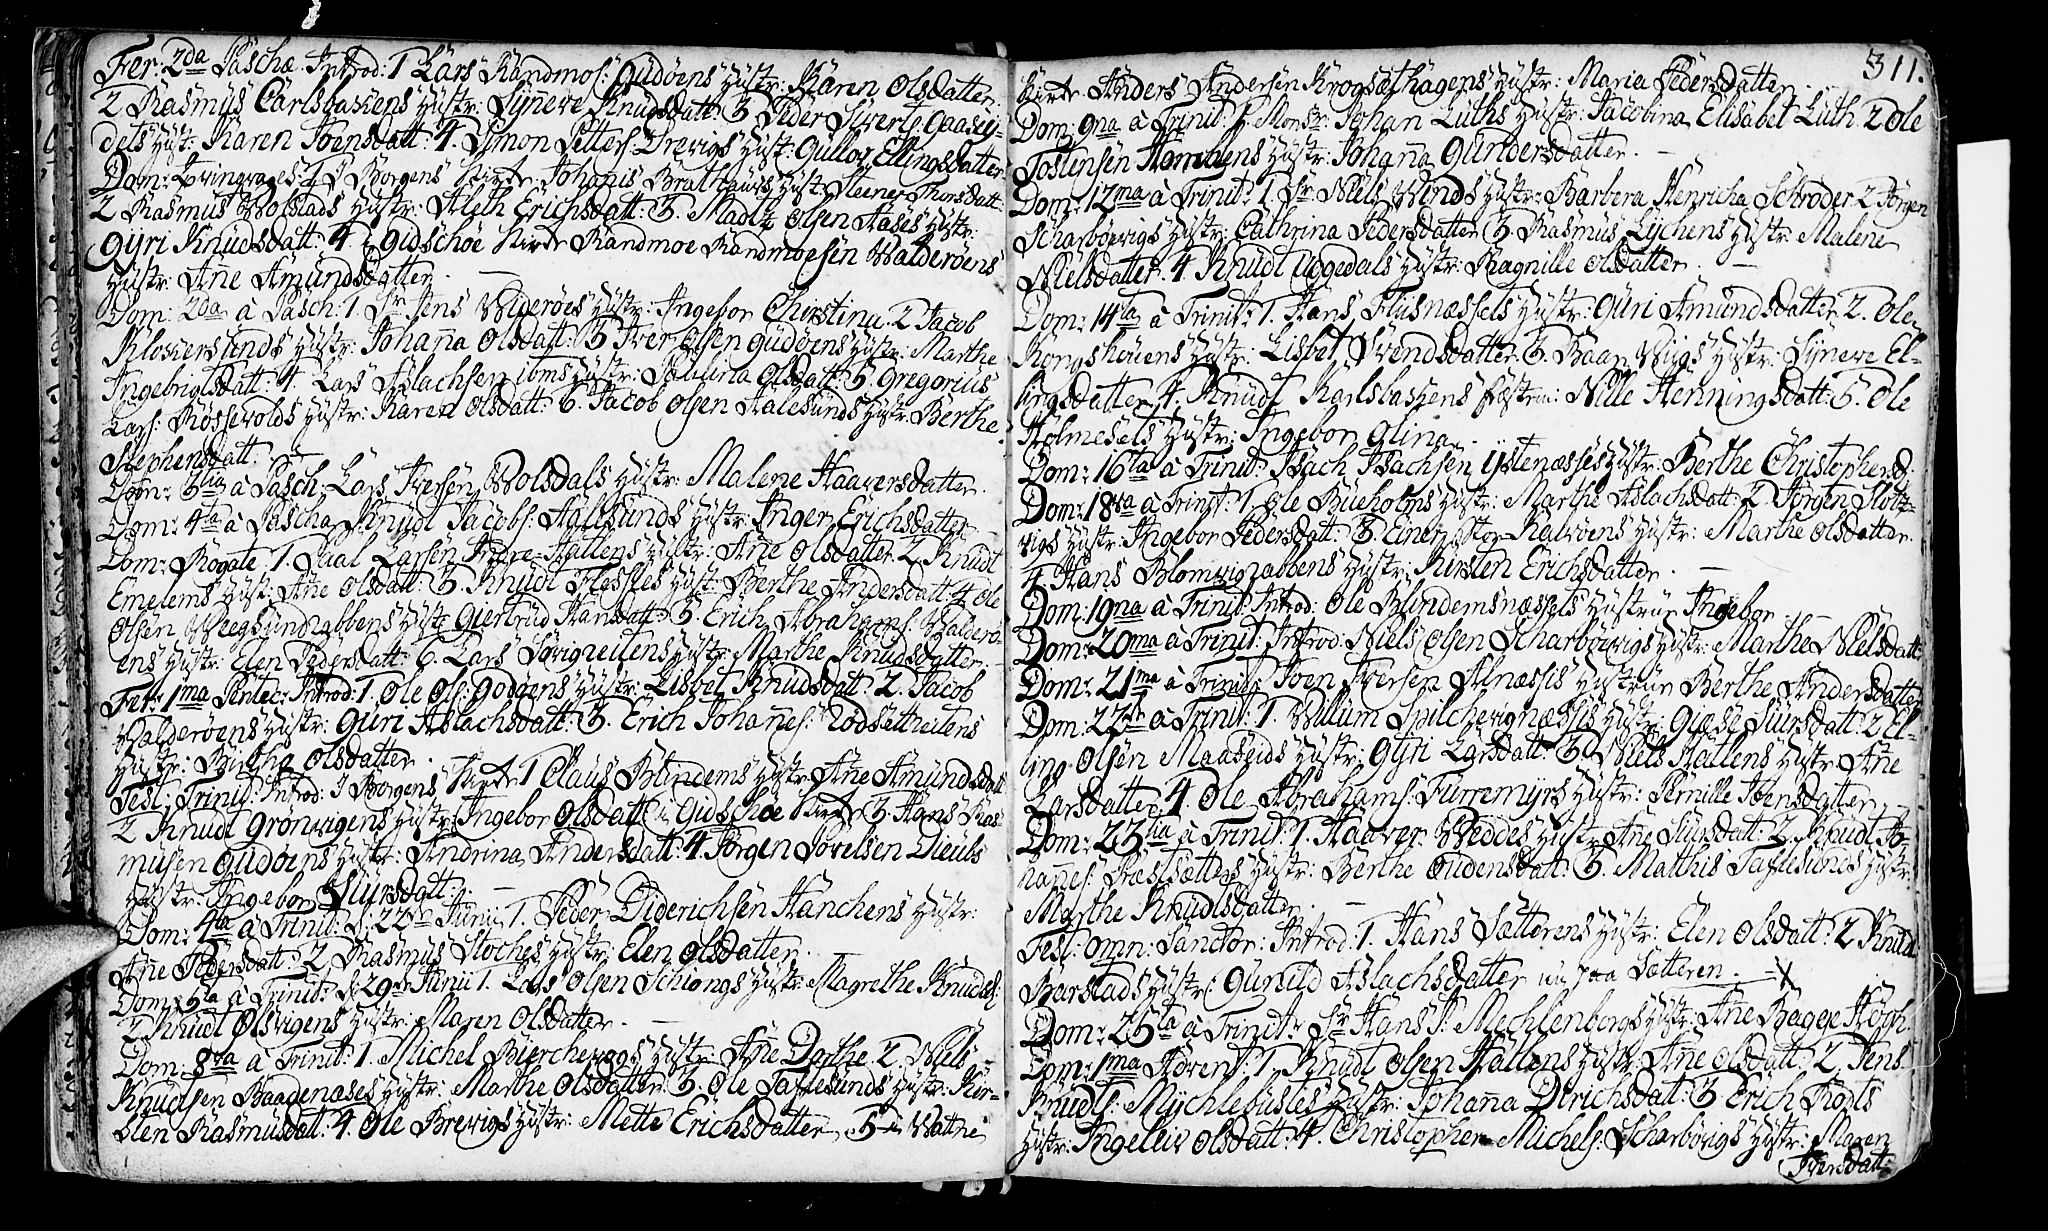 Fer: 2da Paschæ Introd: 1 Lars Randmos: Gudøens Hustr: Karen Olsdatter:
2 Rasmus Carlsbachens Hustr: Synneve Knudsdatt: 3 Peder Siverts: Gaasey-
dets Hust: Karen Joensdatt: 4. Simon Petters: Drevigs Hust: Gulloy Ellingsdatter
Dom: 1 I Borgens Kirke Johanis Brathaugs Hust: Steener Thorsdatt:
2 Rasmus Wolstads Hustr: Aleth Erichsdatt: 3. Madtz Olsen Aases Hustr:
Gyri Knudsdatt: 4 i Gidschøe Kirke Randmoe Randmoesen Walderøens
Hustr: Ane Amundsdatter. —
Dom: 2da à Pasch: 1. Sr Jens Widerøes Hustr: Ingebor Christina. 2 Jacob
Klokersunds Hustr: Johanna Olsdatt: 3 Iver Olsen Gudøens Hustr: Marthe
Ingebrigtsdatt: 4. Lars Aslachsen ibms Hustr: Olsdatt: 5. Gregorius
Lars: Røssevolds Hustr: Karen Olsdatt: 6. Jacob Olsen Aalesunds Hustr: Berthe
Stephensdatt: —
Dom: 3tia à Pasch: Lars Iversen Wolsdals Hustr: Malene Haaversdatter.
Dom: 4ta à Pascha Knudt Jacobs: Aalesunds Hustr: Inger Erichsdatter
Dom: Rogate 1. Paal Larsen Indre-Hatlens Hustr: Ane Olsdatter 2 Knudt
Emelems Hust: Ane Olsdatt: 3. Knudt Flessies Hust: Berthe Andersdatt: 4 Ole
Olsen Weegsundnabbens Hustr: Giertrud Hansdatt: 5. Erich Abrahams: Waldero-
ens Hustr: Elen Pedersdatt: 6. Lars Løvigneitens Hustr: Marthe Knudsdatter.
Fer: 1ma Pentec: Introd: 1. Ole Ols: Godøens Hustr: Lisbet Knudsdatt: 2. Jacob
Walderøens Hustr: Guri Aslachsdatt: 3. Erich Johanes: Rodsettheitens
Hustr: Birthe Olsdatter.
Fest: Trinit: Introd: I Borgens Kirke 1 Claus Blindems Hustr: Ane Amundsdatt
2 Knudt Grønvigens Hustr: Ingebor Olsdatt: i Gidschøe Kirke 3. Hans Ras-
musen Gudøens Hustr: Andrina Andersdatt: 4. Jørgen Povelsen
Hustr: Ingebor Siursdatt: —
Dom: 4ta à Trinit: d: 22de Junii 1. Peder Diderichsen Hanchens Hustr:
Ane Pedersdatt: 2 Rasmus Stoches Hustr: Elen Olsdatter.
Dom: 5ta à Trinit: d: 29de Junii 1. Lars Olsen Schiongs Hustr: Magrethe Knuds:
2 Knudt Olsvigens Hustr: Maren Olsdatter. —
Dom: 8va à Trinit: 1. Michel Bierchevigs Hustr: Ane Dorthe 2. Niels
Knudsen Baadenæses Hustr: Marthe Olsdatter. 3. Ole Taflesunds Hustr: Kir-
sten Rasmusdatt: 4. Ole Brevigs Hustr: Mette Erichsdatter, 5 i Vattne
311.
Kirke Anders Andersen Krogsæthagens Hustr: Maria Pedersdatter.
Dom: 9na à Trinit: 1. Monsr: Johan Luths Hustr: Jacobina Elisabet Luth. 2 Ole
Tostensen Hustr: Johanna Gundersdatter. —
Dom: 12ma à Trinit: 1. Sr Niels Winds Hustr: Barbera Henricha Schrøder 2 Jørgen
Scharbøevigs Hustr: Cathrina Pedersdatter 3. Rasmus Lychens Hustr Malene
Nielsdatter. 4. Knudt Uggedals Hustr: Ragnille Olsdatter. —
Dom: 14ta à Trinit: 1. Hans Flisnæssets Hustr: Guri Amundsdatter 2. Ole
Kongshougens Hustr: Lisbet Svendsdatter. 3. Baar Wiigs Hustr: Synneve El-
lingsdatter. 4. Knudt Karlsbachens Fæstm: Nille Henningsdatt: 5. Ole
Holmesets Hustr: Ingebor Olina. —
Dom: 16ta à Trinit: Isach Isachsen Ystenæsses Hustr: Berthe Christophersd:
Dom: 18va à Trinit: 1. Ole Bueholms Hustr: Marthe Aslachsdatt: 2 Jørgen Slotz-
vigs Hustr: Ingebor Pedersdatt: 3. Einer Stor-Kalvøens Hustr: Marthe Olsdatter.
4. Hans Blomvignabbens Hustr: Kirsten Erichsdatter. —
Dom: 19na à Trinit: Introd: Ole Blindemsnæssets Hustrue Ingebor —
Dom: 20ma à Trinit: Introd: Niels Olsen Scharbøvigs Hustr: Marthe Nielsdatt:
Dom: 21ma à Trinit: Joen Iversen Alnæssis Hustrue Berthe Andersdatter
Dom: 22da à Trinit: 1. Willum Spilchevignæssis Hustr: Giæse Siursdatt: 2 El-
ling Olsen Maaseids Hustr: Gyri Larsdatt: 3. Niels Hatlens Hustr: Ane
Larsdatter. 4 Ole Abrahams: Furremyrs Hustr: Pernille Joensdatter. —
Dom: 23tia à Trinit: 1. Haaver Weddes Hustr: Ane Siursdatt: 2 Knudt Jo-
hannes: Præstsætters Hustr: Berthe Oudensdatt: 3. Matthis Taflesunds Hustr:
Marthe Knudsdatter. —
Fest: Omn: Sanctor: Introd: 1. Hans Sætterens Hustr: Elen Olsdatt: 2 Knudt
Barstads Hustr: Gunild Aslachsdatter nu paa Sætteren. —
Dom: 25ta à Trinit: Sr Hans S: Mechlenborgs Hustr: Ane Bagge Høgh.
Dom: 1ma Advent: 1. Knudt Olsen Hatlens Hustr: Ane Olsdatt: 2. Jens
Knudts: Mychlebustes Hustr: Johanna Olrichsdatt: 3 Erich Rødts
Hustr: Ingeleiv Olsdatt: 4. Christopher Michels: Scharbøvigs Hustr: Maren
Iversdatt: